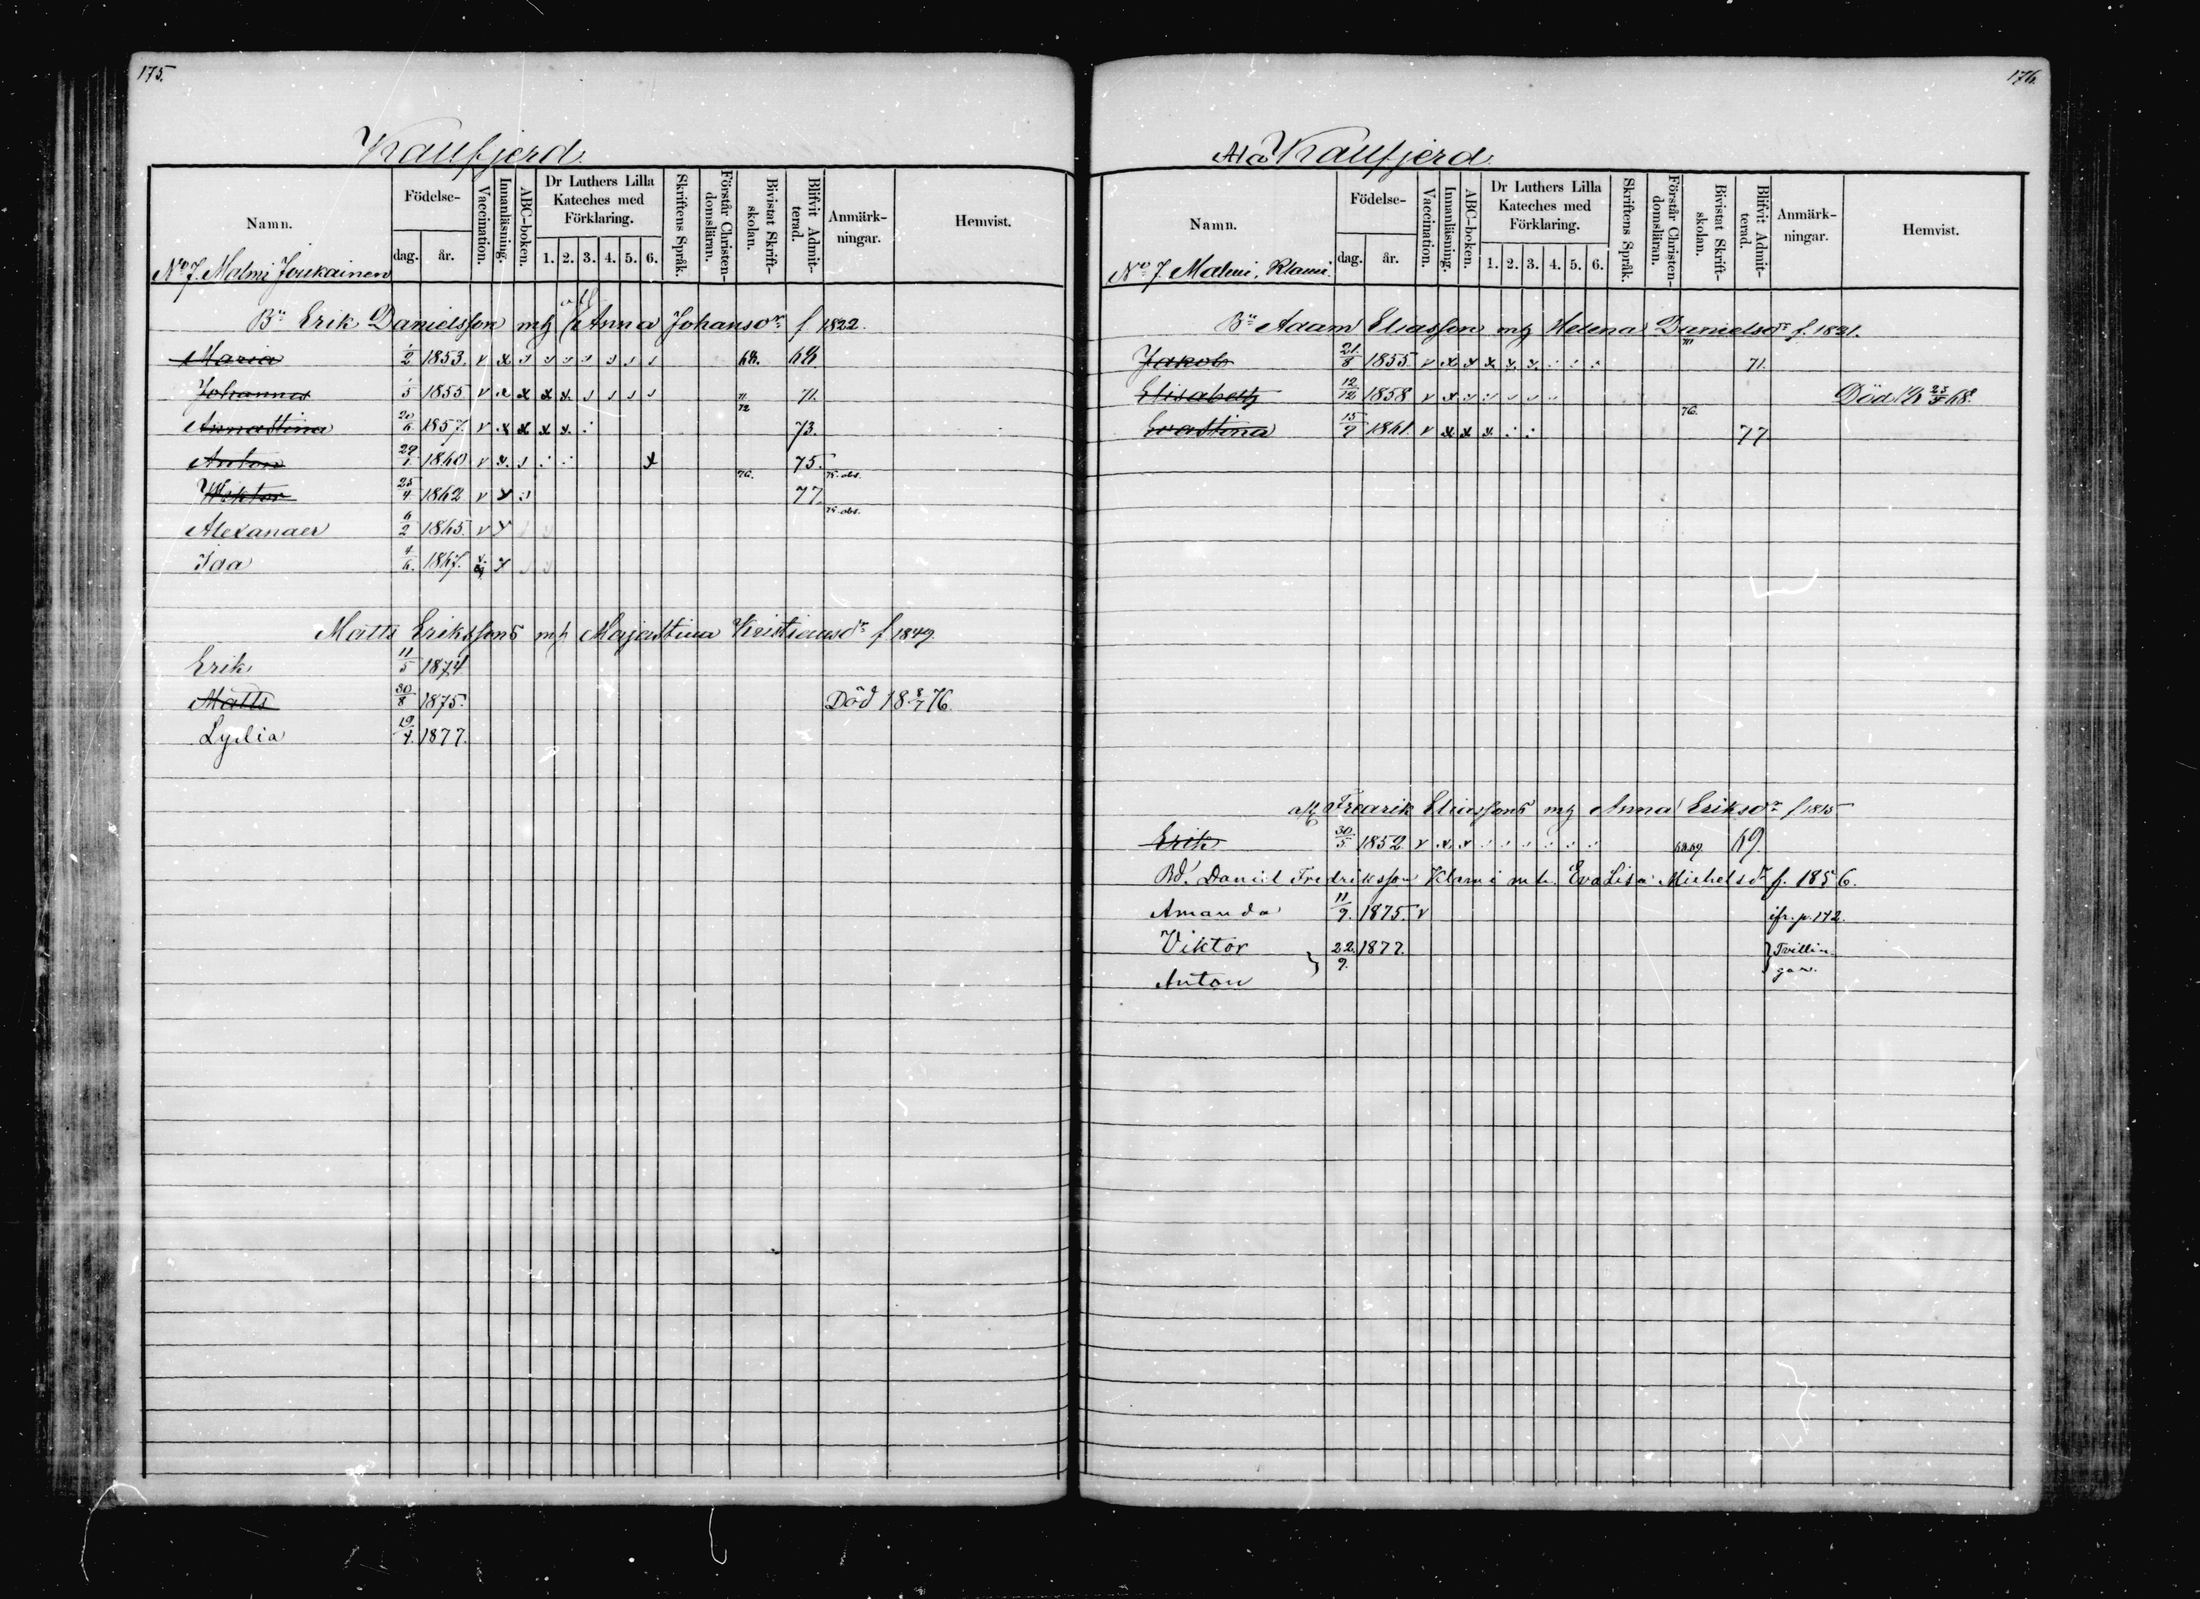 175.
Kaufjerd.
Namn.
Födelse-
dag.
år.
Vaccination.
Innanläsning.
ABC-boken.
Dr Luthers Lilla Kateches med Förklaring.
1. 2. 3. 4. 5. 6.
Skriftens Språk.
Förstår Christen-domsläran.
Bivistat Skrift-skolan.
Blifvit Admit-terad.
Anmärk-ningar.
Hemvist.
No 7. Malmi Joukainen
Bn Erik Danielsson m h Anna Johansdr f 1822.
Maria 1/2 1853. v x 68. 68.
Johannes 1/5 1855 v x x x x. 71.
Annastina 20/6 1857. v x x x x. 72 73.
Anton 29/1 1860 v x. x 75.
Wiktor 25/4 1862 v x 76. 77. 75. obs.
Alexander 6/2 1865. v x 75. obs.
Ida 4/6. 1867. v x
Matts Erikssons m h Majastina Kristiansdr f 1849.
Erik 11/5 1874
Matts 30/8 1875. Död 18 8/7 76.
Lydia 19/4 1877.
176.
Kaufjerd.
Namn.
Födelse-
dag.
år.
Vaccination.
Innanläsning.
ABC-boken.
Dr Luthers Lilla Kateches med Förklaring.
1. 2. 3. 4. 5. 6.
Skriftens Språk.
Förstår Christen-domsläran.
Bivistat Skrift-skolan.
Blifvit Admit-terad.
Anmärk-ningar.
Hemvist.
No 7. Malmi, Klami.
Bn Adam Eliasson m h Helena Danielsdr f. 1821.
Jakob 21/8 1855. v x x x. x. x. 71.
Elisabeth 12/12 1858 v x Död 18 68.
Evastina 15/9 1861. v x x x 76. 77
Fredrik Eliassons m h Anna Eriksdr f 1815
Erik 30/5 1852 v x. x 68.69. 69.
Bd. Daniel Fredriksson Klami m h. Eva Lisa Michelsdr f. 1856.
Amanda 11/9. 1875. v jfr. p. 172.
Viktor } 22/9. 1877. } Tvillin-
Anton gar.